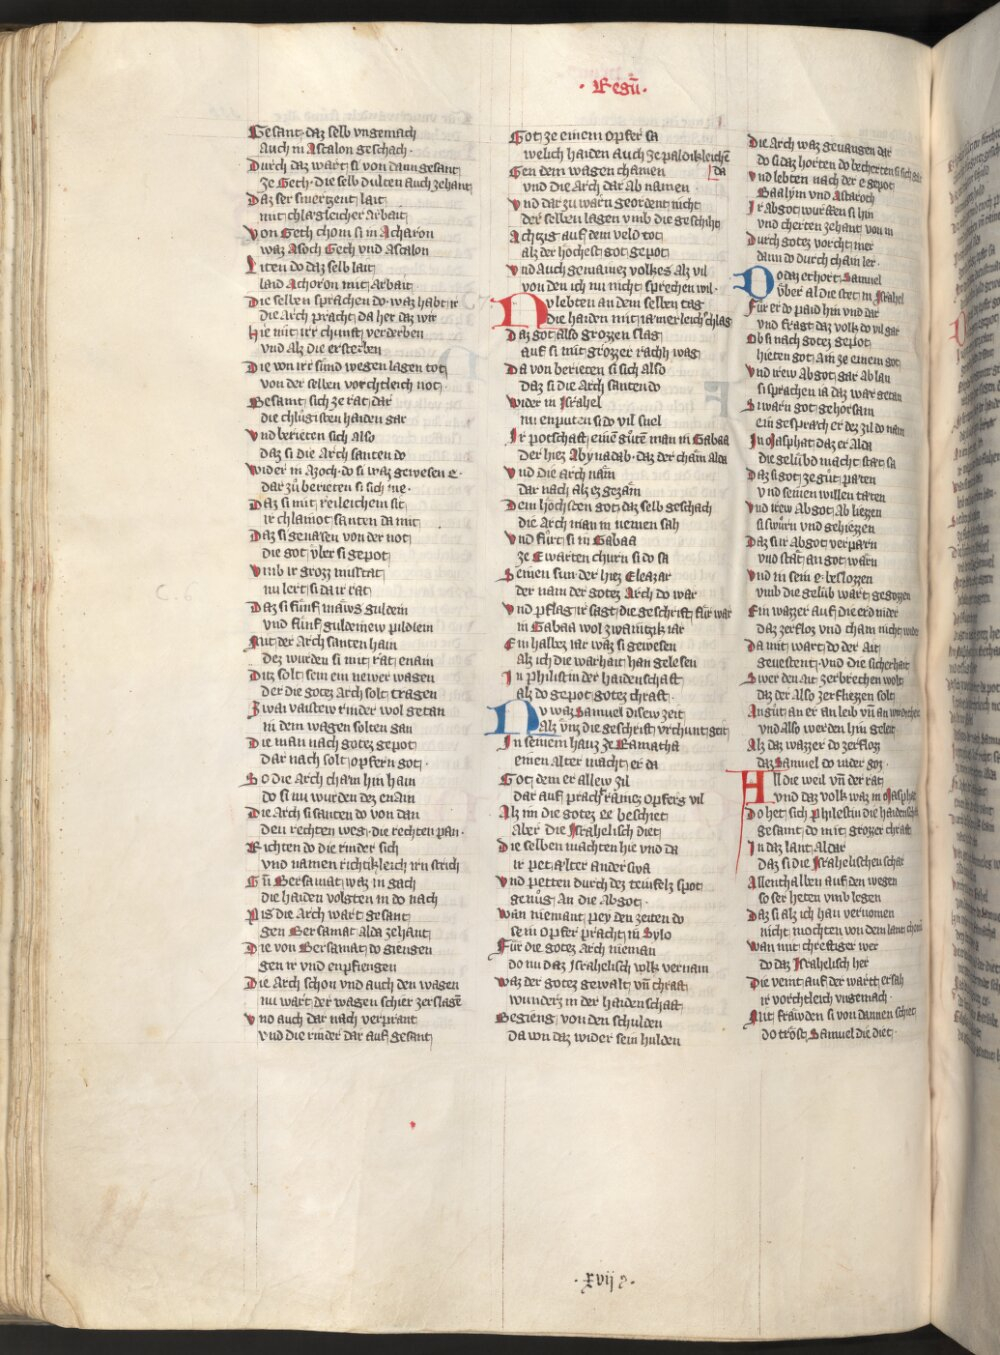 · Regū ·
Gesant· daz selb vngemach
Auch in Astalon geschach ·
Durch daz wart si von dann gesant
Ze Geth · die selb dulten auch zehant
Daz ser smertzent laut
mit chlagleicher arbait
Von Geth chom si in Acharon
waz Asoch Geth vnd Ascalon
Liten do daz selb laut
laid Achoron mit Arbait
Die selben sprachen do· waz habt ir
die Arch pracht da her daz wir
Hie mit irr chunft verderben
vnd Alz die ersterben
Die von irr sund wegen lagen tot
von der selben vorchtleich not ·
Besamt sich ze rat dar
die chlugisten haiden gar
Vnd berieten sich also
daz si die Arch santen do
Wider in Azoch· do si waz gewesen e ·
dar zů berieten si sich me·
Daz si mit reileichem sit
ir chlainot santen da mit
Daz si genasen von der not
die got vber si gepot
Vmb ir grozz missetat
nu lert si da ir rat
Daz si funf maws guldein
vnd funf guldeinew pildlein
Mit der Arch santen hain
dez wurden si mit rat enain
Ditz solt sein ein newer wagen
der die gotes Arch solt tragen
Zwai vaistew rinder wol getan
in dem wagen solten gan
Die man nach gotez gepot
dar nach solt opfern got ·
So die Arch cham hin hain
do si nu wurden dez enain
Die Arch si santen do von dan
den rechten weg· die rechten pan ·
Richten do die rinder sich
vnd namen richtikleich irn strich
Gn̄ Bersamat waz in gach
die haiden volgten in do nach
Pis die Arch wart gesant
gen Bersamat alda zehant
Die von Bersamat do giengen
gen ir vnd enpfiengen
Die Arch schon vnd auch den wagen
nu wart der wagen schier zerslagē
Vnd auch dar nach verprant
vnd die rinder dar auf gesant
Got ze einem opfer sa
welich haiden auch ze paldikleichē
Gen dem wagen chamen da
vnd die Arch dar ab namen
Vnd dar zu warn geordent nicht
der selben lagen vmb die geschiht
Achtzig auf dem veld tot
alz der hochest got gepot
Vnd auch gemaines volkes alz vil
von den ich nu nicht sprechen wil ·
Nv lebten an dem selben tag
die haiden mit iamerleich chlag
Daz got also grozzen slag
auf si mit grozzer rachh wag
Da von berieten si sich also
daz si die Arch santen do
Wider in Israhel
nu enputen si do vil snel
Ir potschaft einē gůtē man in Gabaa
der hiez Abynadab· daz der cham alda
Vnd die arch nam
dar nach alz ez gezam
Dem hochsten got daz selb geschach
die Arch man in nemen sah
Vnd fůrt si in Gabaa
ze Ewarten churn si do sa
Seinen sun der hiez Eleazar
der nam der gotez Arch do war
Vnd pflag ir sagt die geschrift fur war
in Gabaa wol zwaintzk iar
Ein halbez iar waz si gewesen
alz ich die warhait han gelesen
In philistin der haidenschaft
alz do gepot gotez chraft ·
Nv waz Samuel disew zeit
Alz vnz die geschrift vrchunt geit
In seinem hauz ze Ramatha
einen alter macht er da
Got dem er allew zil
dar auf pracht ramez opfers vil
Alz im die gotez ee beschiet
Aber die Israhelisch diet
Die selben machten hie vnd da
ir petalter anderswa
Vnd petten durch dez teufels spot
genůg an die Abgot ·
Wan niemant pey den zeiten do
sein opfer pracht in Sylo
Für die gotez Arch nieman
do nu daz Israhelisch volk vernam
Waz der gotez gewalt vn̄ chraft
wunders in der haidenschaft
Begieng von den schulden
da von daz wider sein hulden
Die Arch waz geuangen dar
do si daz horten do becherten si sich gar
Vnd lebten nach der e gepot
Baalym vnd Astaroch
Ir abgot wurffen si hin
vnd cherten zehant von in
Durch gotez vorcht mer
dann do durch chain ler ·
Do daz erhort Samuel
Vber al die stet in Israhel
Fur er do paid hin vnd dar
vnd fragt daz volk do vil gar
Ob si nach gotez gepot
hieten got Ain ze einem got
Vnd irew Abgot gar ab lan
si sprachen ia daz war getan
Si warn got gehorsam
ein gesprach er dez zil do nam
In Masphat daz er alda
die gelübd macht stat sa
Daz si got ze gůt paten
vnd seinen willen taten
Vnd irew Abgot ab liezzen
si swůrn vnd gehiezzen
Daz si ir abgot verparn
vnd stat an got warn
Vnd in sein e· beslozzen
vmb die gelüb wart gegozzen
Ein wazzer auf die erd nider
daz zerfloz vnd cham nicht wider
Da mit wart do der Ait
geuestent· vnd die sicherhait
Swer den ait zerbrechen wolt
daz der also zerfliezzen solt
An gůt an er an leib vn̄ an wirdichet
vnd also werden hin geleit
Alz daz wazzer do zerfloz
daz Samuel do nider goz ·
All die weil vn̄ der rat
vnd daz volk waz in Masphat
Do het sich philestin die haidenschaft
gesamt do mit grozzer chraft
In daz lant aldar
daz si die Israhelischen schar
Allenthalben auf den wegen
so ser heten vmb legen
Daz si alz ich han vernomen
nicht mochten von dem lant chomē
Wan mit chreftiger wer
do daz Israhelisch her
Die veint auf der wartt ersah
ir vorchtleich vngemach ·
Mit frawden si von dannen schiet
do trost Samuel die diet ·
· xvij 9 ·